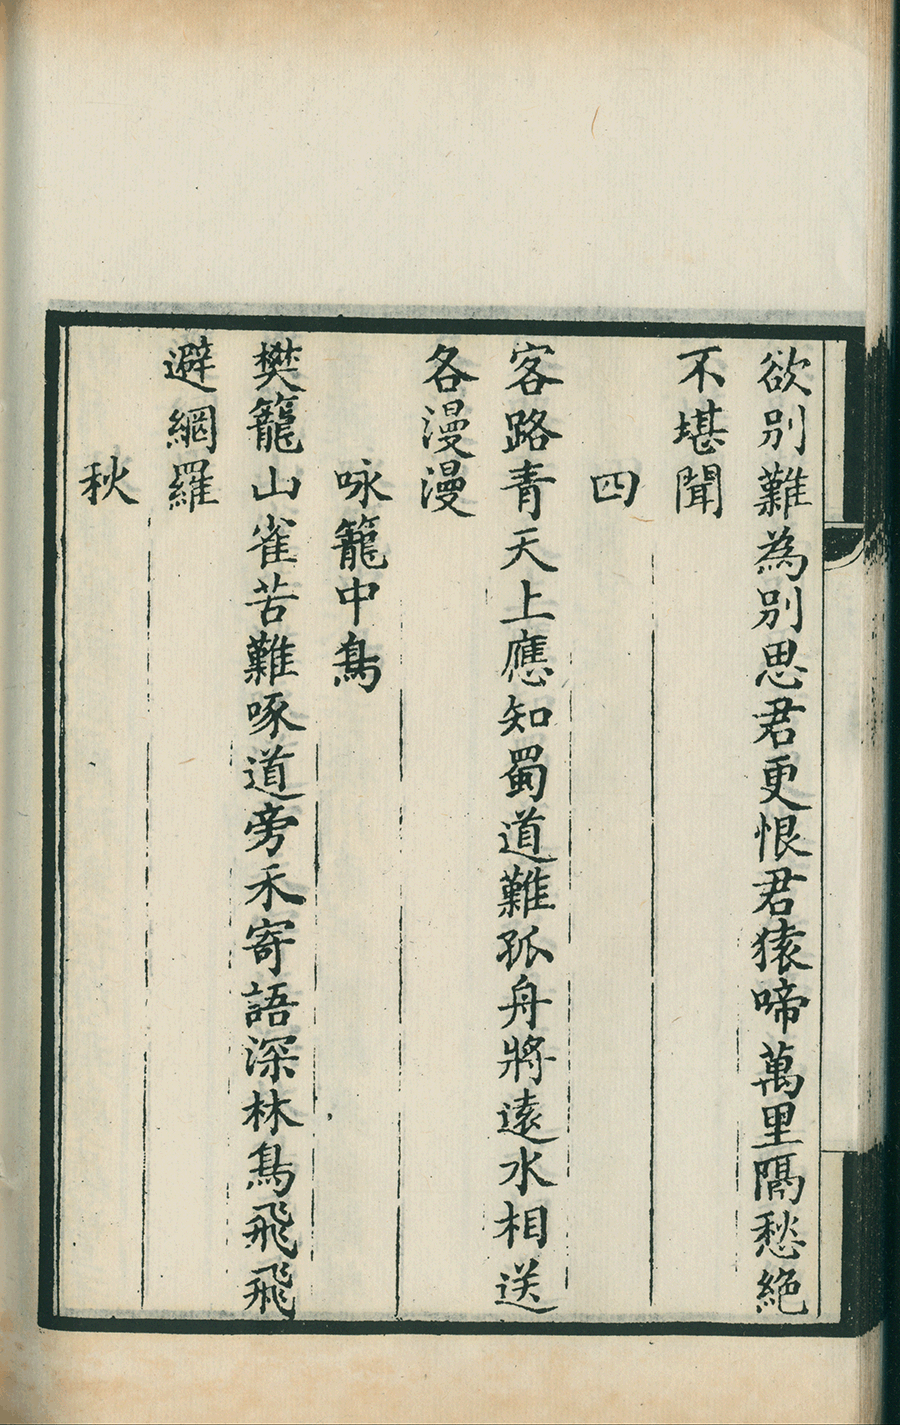 欲別難為別思君更恨君猿啼萬里隔愁絕
不堪聞
四
客路青天上應知蜀道難孤舟將遠水相送
各漫漫
咏籠中鳥
樊籠山雀苦難啄道旁禾寄語深林鳥飛飛
避網羅
秋